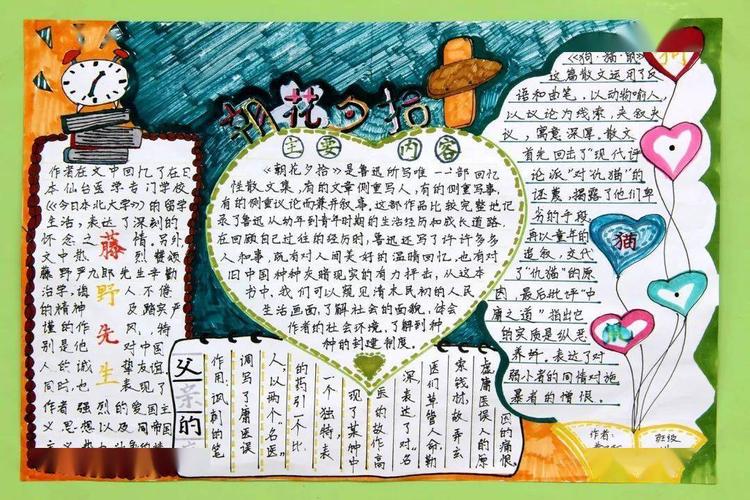 朝花夕拾
主要 内容
《朝花夕拾》是鲁迅所写唯一一部回忆
性散文集,有的文章侧重写人,有的侧重写事,
有的侧重议论而兼并叙事。这部作品比较完整地记
录了鲁迅从幼年到青年时期的生活经历和成长道路.
在回顾自己过往的经历时,鲁迅还写了许许多多
人和事,既有对人间美好的温晴回忆,也有对
旧中国种种灰暗现实的有力抨击,从这本
书中,我们可以窥见清末民初的人民
生活画面,了解社会的面貌,体会
作者的社会环境,了解到种
种的封建制度.
作者在文中回忆了在日
本仙台医学专门学校
《今日本北大学》的留学
生活,表达了深刻的
怀念之 情.另外
文中散 赞颂
藤野严九郎先生辛勤
治学,诲 人不倦
的精神 及踏实严
谨的作 风,特
别是他 对中国
人的诚 挚友谊,
同时,也 表现了
作者强烈的爱国主
义思想以及同帝国
藤野先生
父亲的
作用:讽刺的笔
调写了庸医误
人,以两个“名医”
的药引一个比
一个独特,表
现了某种中
医的故作高
深表达了对“名
医们草菅人命,勒
索钱财,故弄玄
虚庸医误人的原
因的痛恨.
《狗·猫·鼠》
这篇散文运用了反
语和曲笔,以动物喻人,
以议论为线索,夹叙夹
议,寓意深厚.散文
首先回击了“现代评
论派”对“仇猫”的
诬蔑,揭露了他们卑
劣的手段,
再以童年的
追叙,交代
了“仇猫”的原
因,最后批评“中
庸之道”指出它
的实质是纵恶
养奸,表达了对
弱小者的同情对施
暴者的憎恨.
狗
猫
作者:
班级